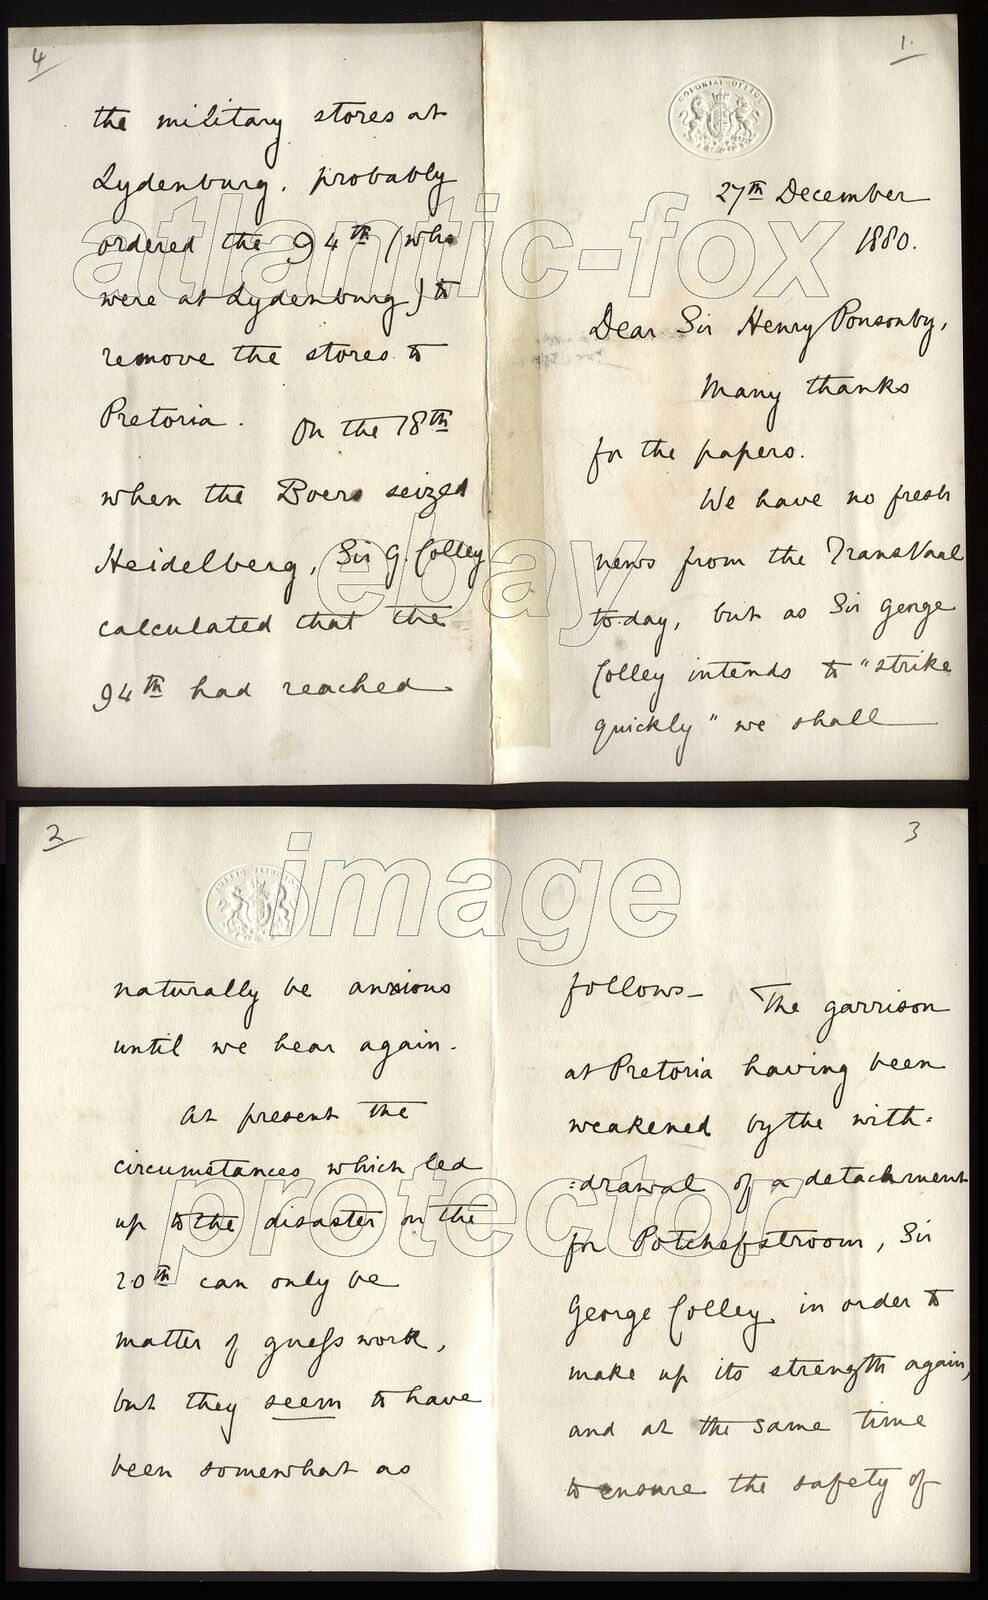 1.
COLONIAL OFFICE
27th December
1880.
Dear Sir Henry Ponsonby,
Many thanks
for the papers.
We have no fresh
news from the TransVaal
to-day, but as Sir George
Colley intends to "strike
quickly" we shall
2
naturally be anxious
until we hear again.
At present the
circumstances which led
up to the disaster on the
20th can only be
matter of guess work,
but they seem to have
been somewhat as
3
follows— The garrison
at Pretoria having been
weakened by the with=
=drawal of a detachment
for Potchefstroom, Sir
George Colley in order to
make up its strength again,
and at the same time
to ensure the safety of
4
the military stores at
Lydenburg, probably
ordered the 94th (who
were at Lydenburg) to
remove the stores to
Pretoria. On the 18th
when the Boers seized
Heidelberg, Sir G. Colley
calculated that the
94th had reached
atlantic-fox
ebay
image
protector